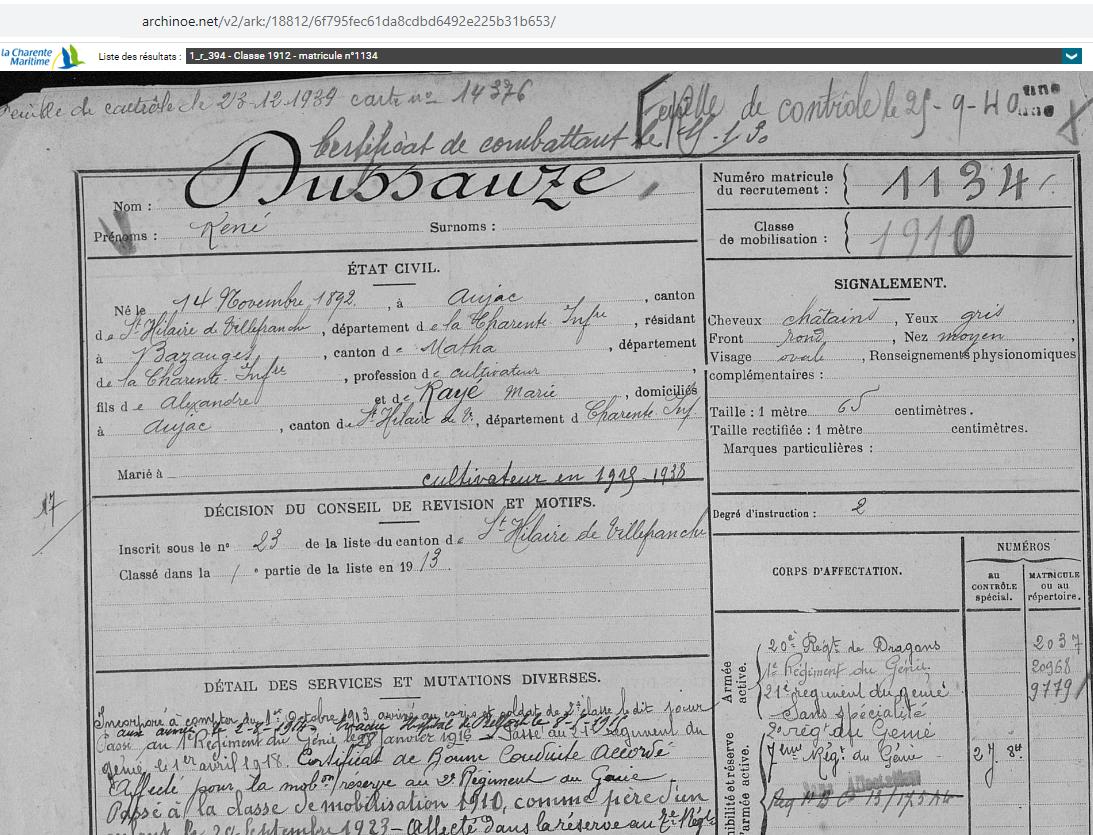 archinoe.net/v2/ark:/18812/6f795fec61da8cdbd6492e225b31b653/
la Charente
Maritime
Liste des résultats :
1_r_394 - Classe 1912 - matricule n°1134
Feuille de contrôle le 23-12-1939 carte no 14376
Feuille de contrôle le 25-9-40
Certificat de combattant le
Nom : Dussauze
Prénoms : René
Surnoms :
Numéro matricule
du recrutement : 1134
Classe
de mobilisation : 1910
ÉTAT CIVIL.
Né le 14 Novembre 1892, à Aujac, canton
de St Hilaire de Villefranche, département de la Charente Infre, résidant
à Bazauges, canton de Matha, département
de la Charente Infre, profession de cultivateur,
fils de Alexandre et de Rayé Marie, domiciliés
à Aujac, canton de St Hilaire de V., département d Charente Inf
Marié à
cultivateur en 1919-1938
SIGNALEMENT.
Cheveux châtains, Yeux gris,
Front rond, Nez moyen
Visage ovale, Renseignements physionomiques
complémentaires :
Taille : 1 mètre 65 centimètres.
Taille rectifiée : 1 mètre centimètres.
Marques particulières :
Degré d'instruction : 2
17
DÉCISION DU CONSEIL DE REVISION ET MOTIFS.
Inscrit sous le no 23 de la liste du canton de St Hilaire de Villefranche
Classé dans la 1e partie de la liste en 1913.
CORPS D'AFFECTATION.
NUMÉROS
au
CONTRÔLE
spécial.
MATRICULE
ou au
répertoire.
Armée
active.
20e Régt de Dragons 2037
1er Régiment du Génie 20968
21e régiment du génie 9779
Sans spécialité
2e régt du Génie
7ème Régt du Génie 27. 8t
nibilité et réserve
l'armée active.
DÉTAIL DES SERVICES ET MUTATIONS DIVERSES.
Incorporé à compter du 1er Octobre 1913, arrivé au corps et soldat de 2e classe le dit jour
aux armées le 2-8-1914
Passé au 1er Régiment du Génie le 28 janvier 1916 - Passé au 21e régiment du
génie, le 1er avril 1918. Certificat de Bonne Conduite Accordé
Affecté pour la mobon réserve au 2e Régiment du Génie.
Passé à la classe de mobilisation 1910, comme père d'un
enfant le 20 septembre 1923 - Affecté dans la réserve au 7e Régt